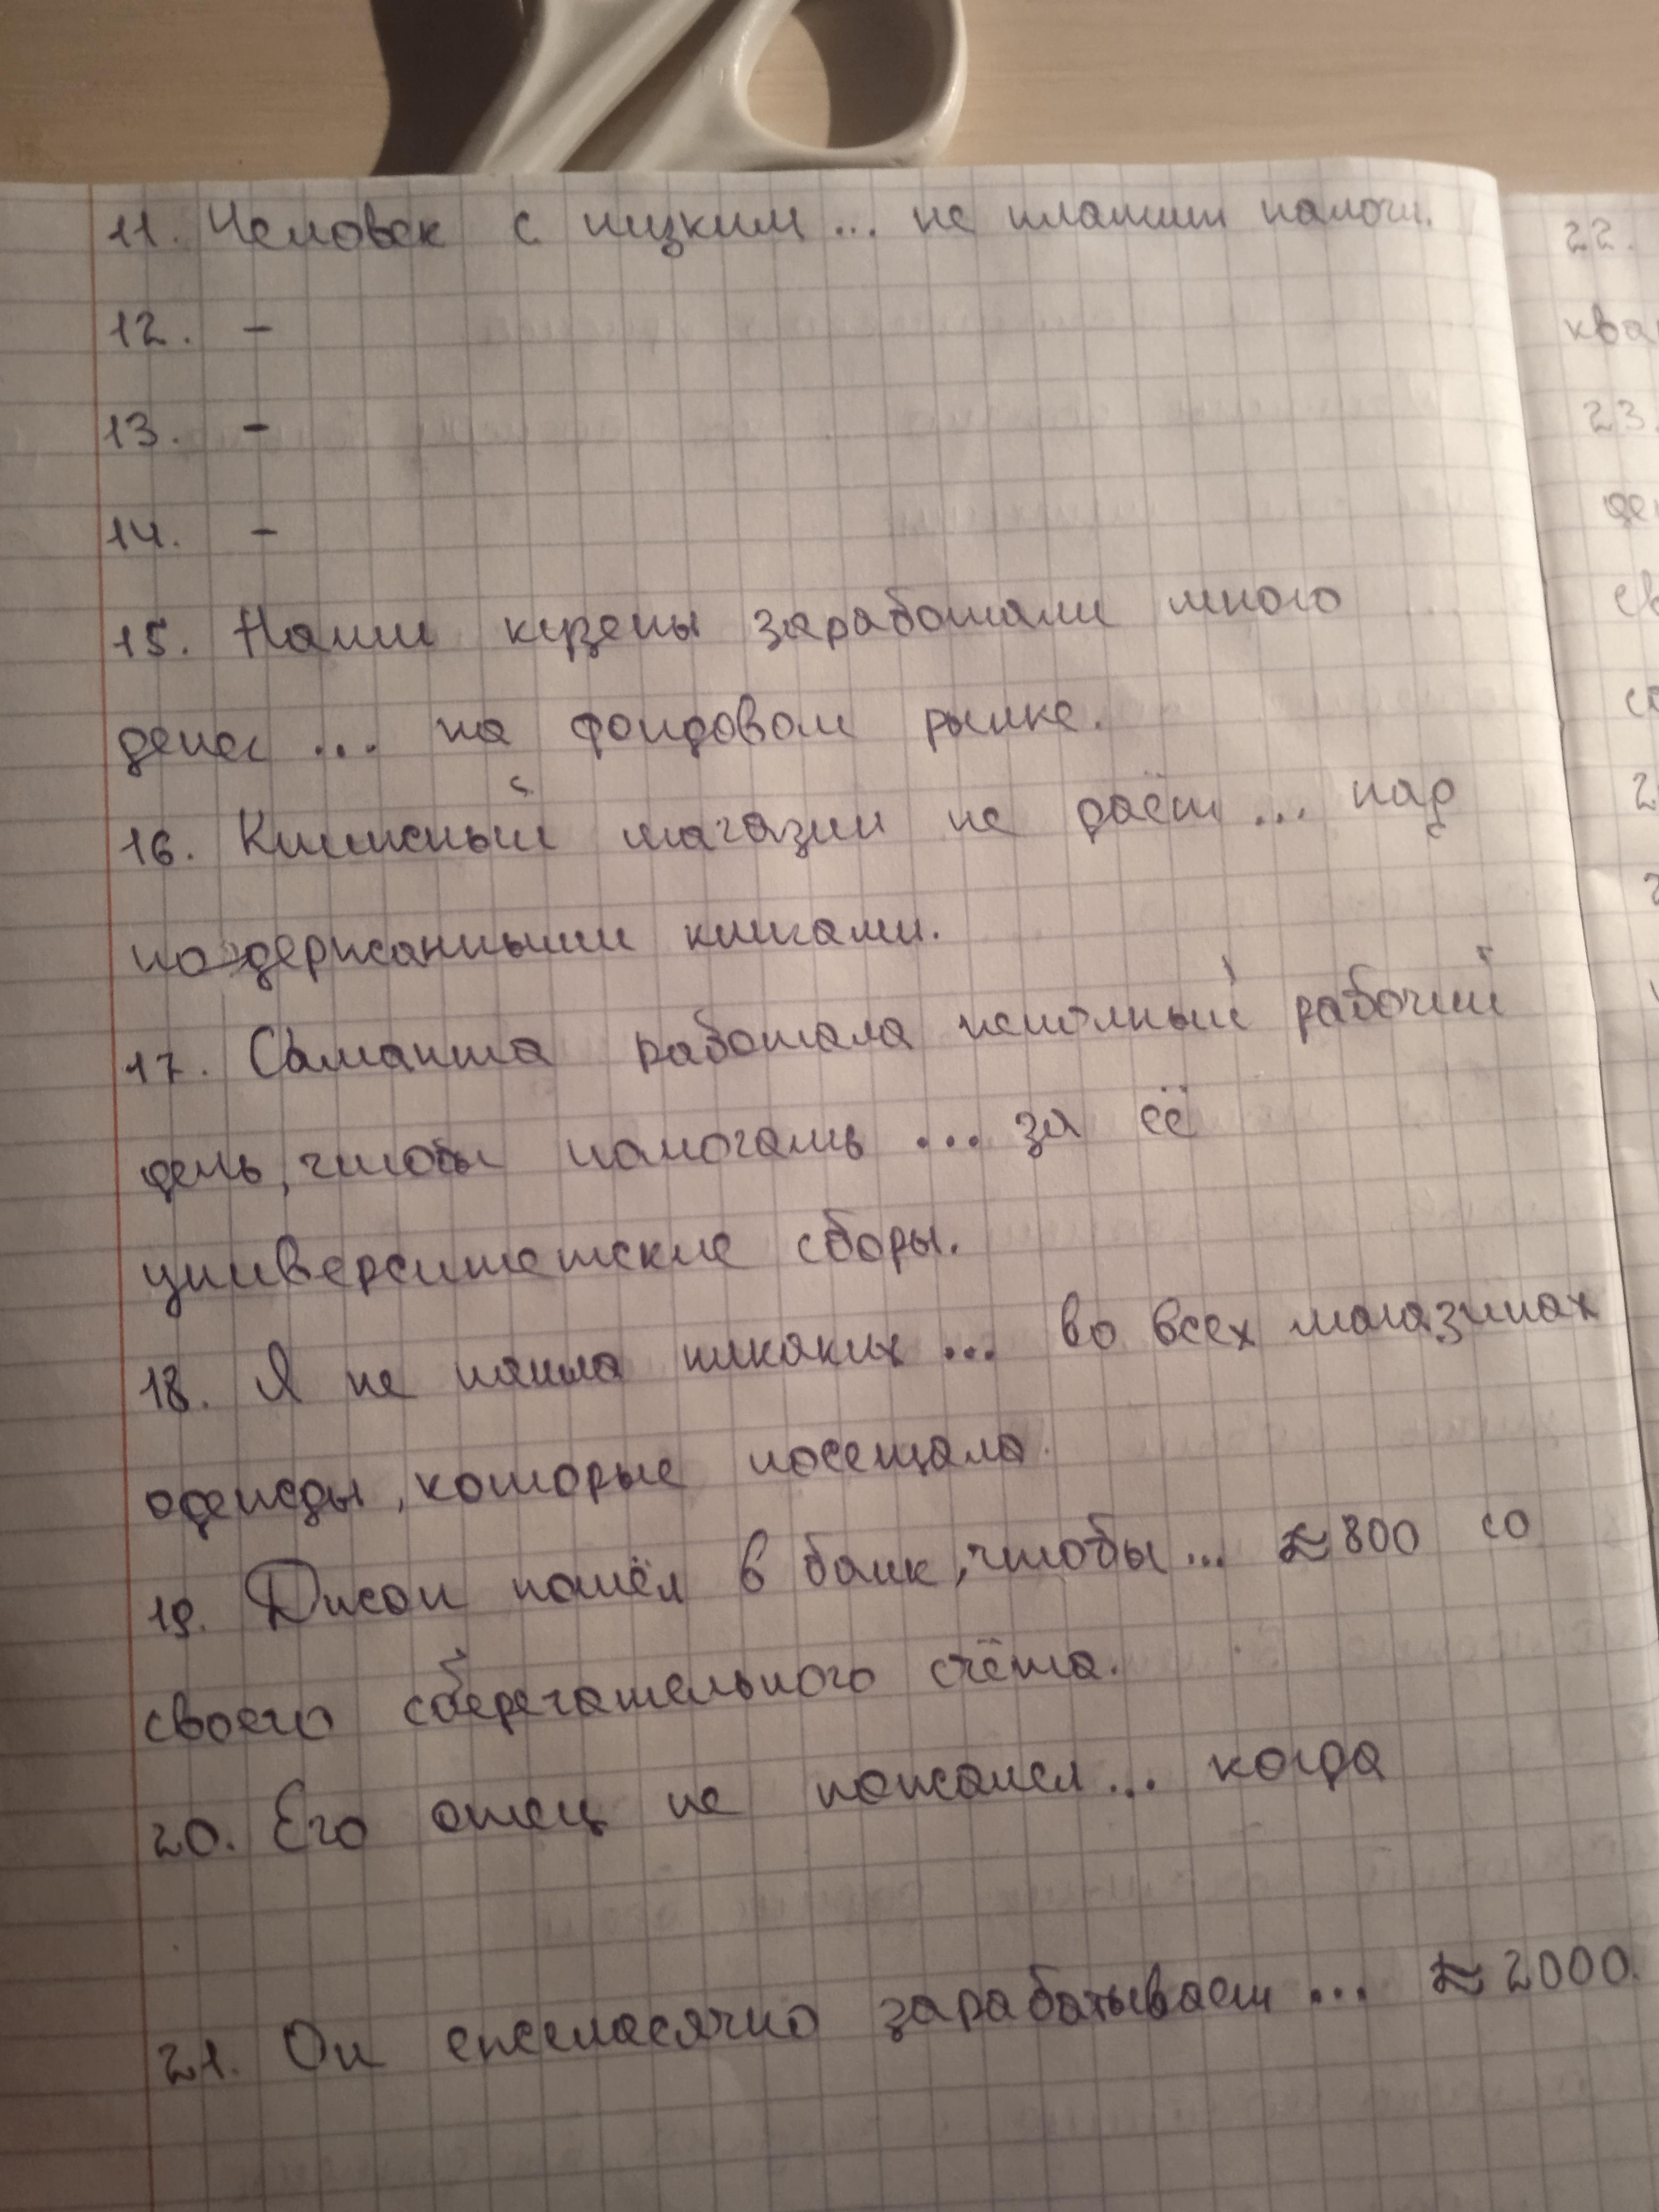 11. Человек с низким ... не платит налоги.
12. –
13. –
14. –
15. Наши кузены заработали много
денег ... на фондовом рынке.
16. Книжный магазин не даёт ... над
подержанными книгами.
17. Саманта работала неполный рабочий
день, чтобы помогать ... за её
университетские сборы.
18. Я не нашла никаких ... во всех магазинах
одежды, которые посещала.
19. Джон пошёл в банк, чтобы ... ≈800 со
своего сберегательного счёта.
20. Его отец не пожалел ... когда
21. Он ежемесячно зарабатывает ... ≈2000.
22.
ква
23.